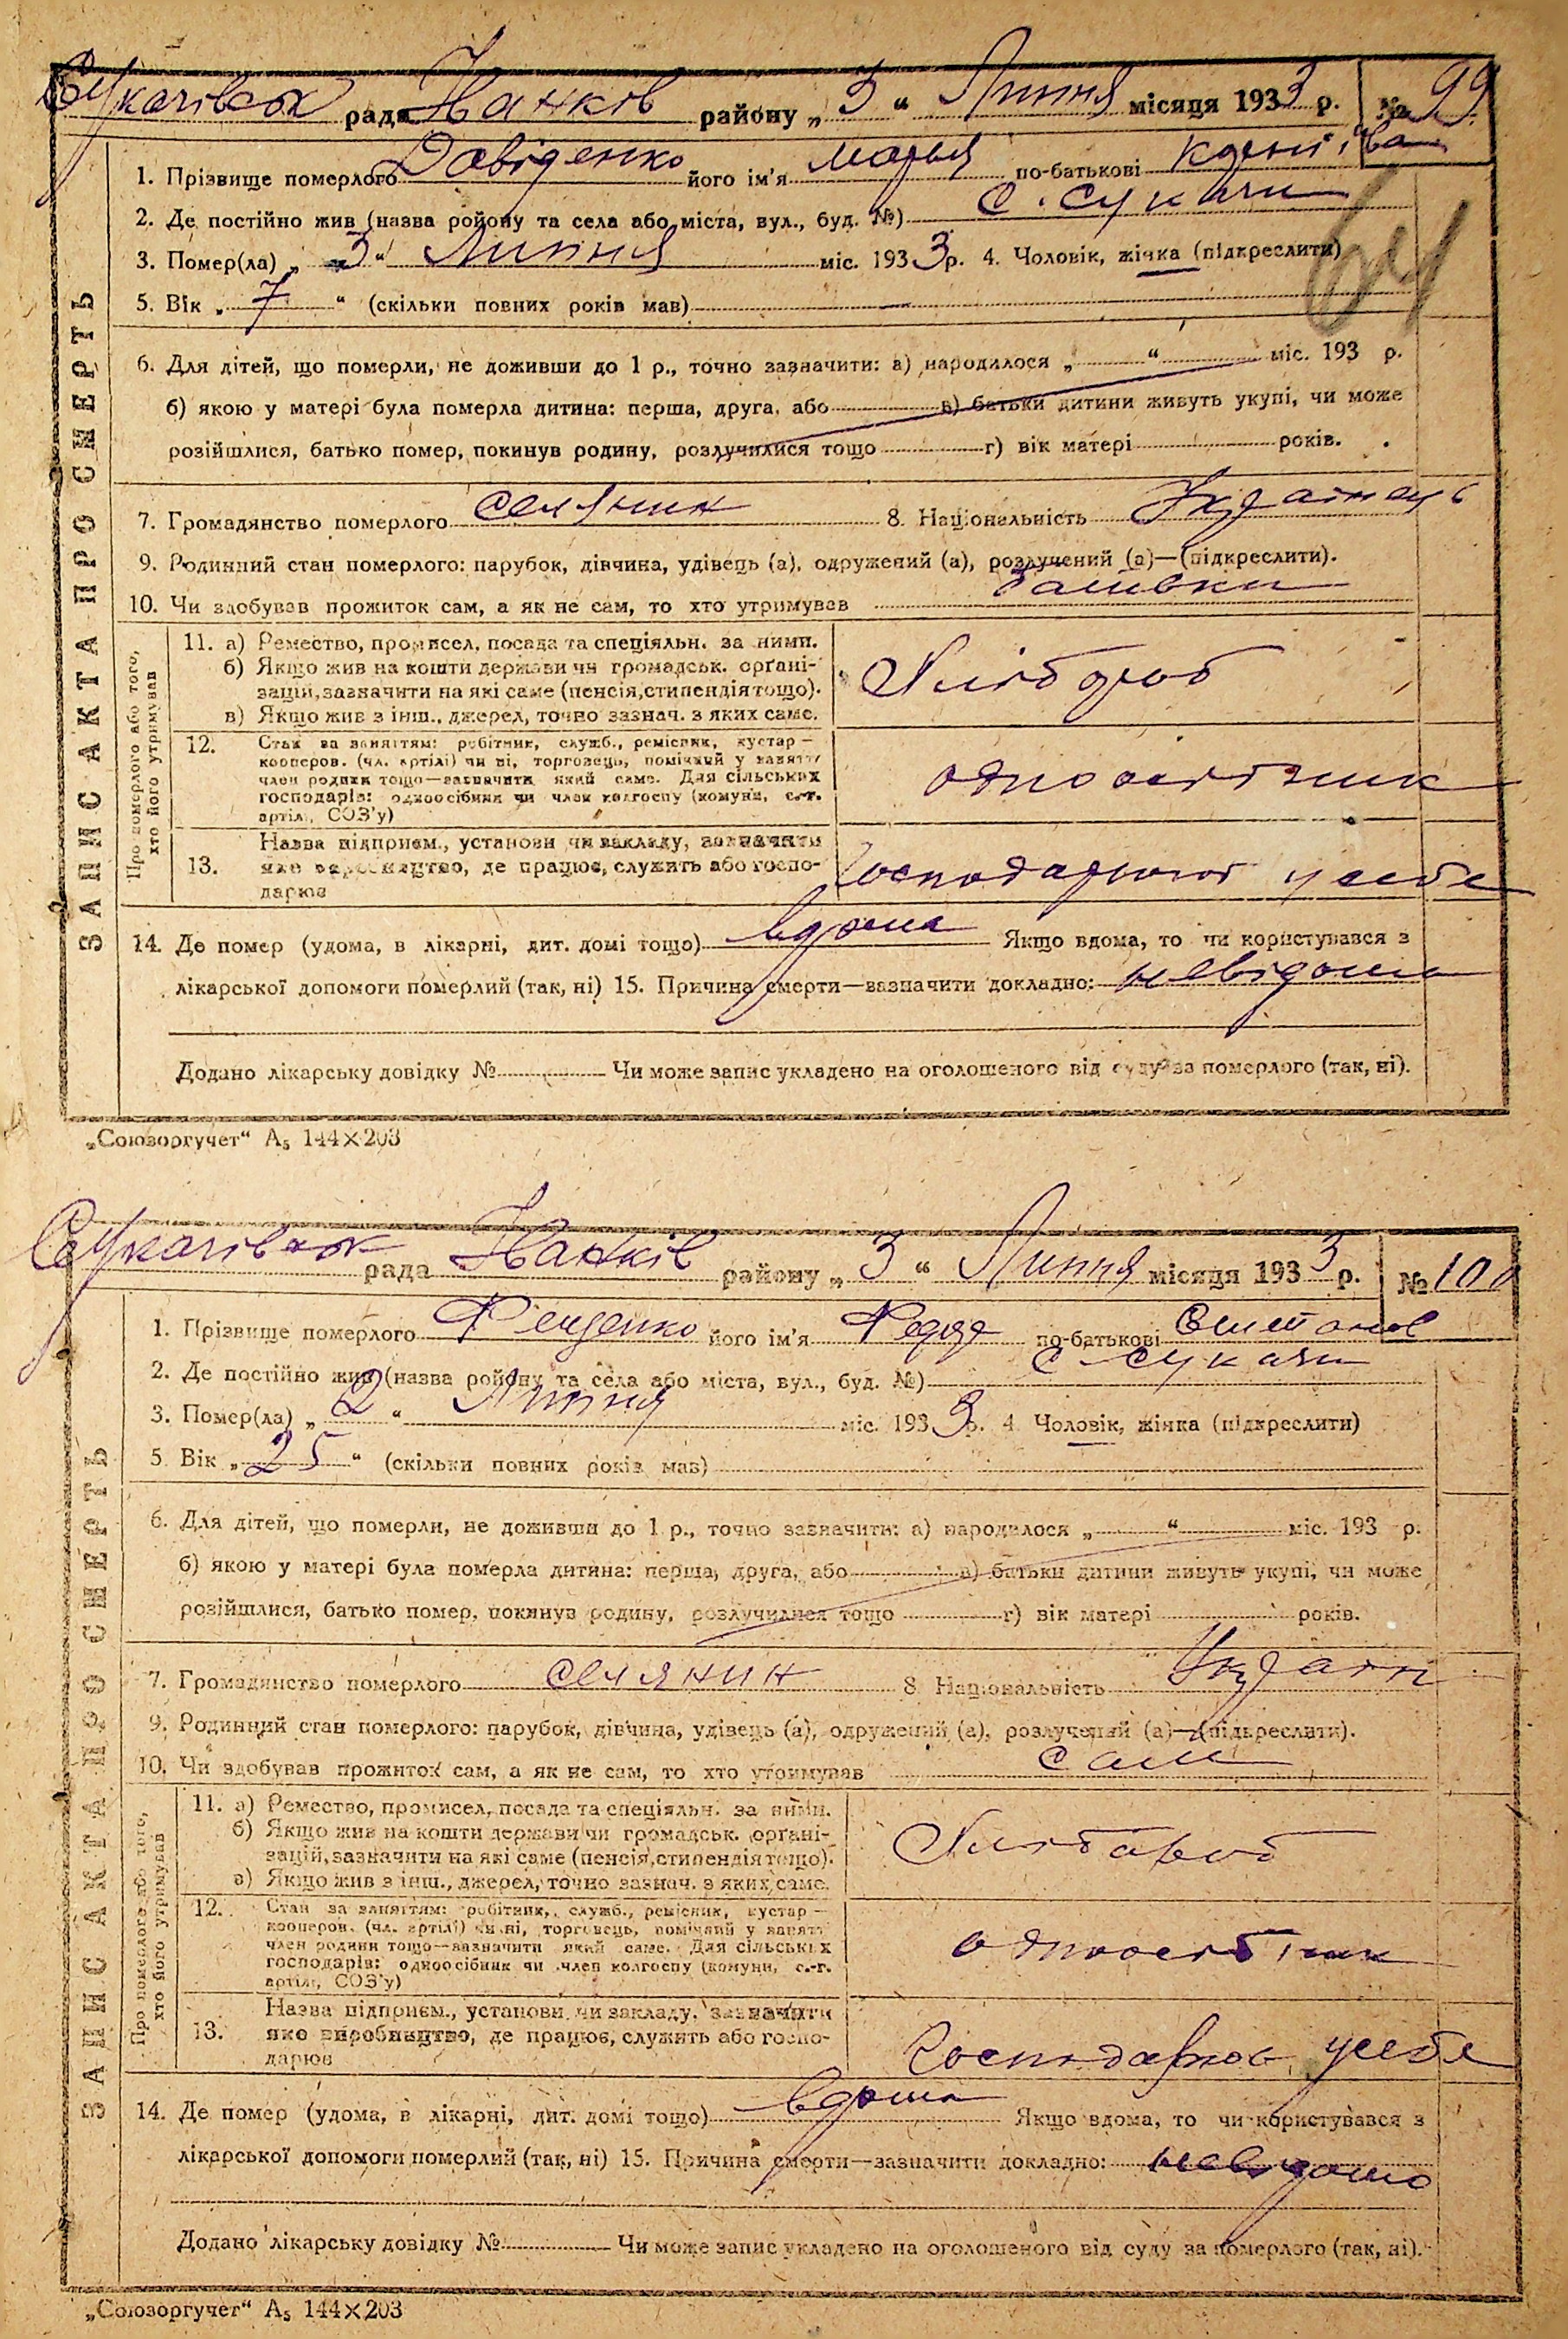 рада Иванків району „ 3 “ Липня місяця 1933 р. № 99
64
ЗАПИС АКТА ПРО СМЕРТЬ
1. Прізвище померлого Давіденко його ім'я Марья по-батькові
2. Де постійно жив (назва ройону та села або міста, вул., буд. №) с. Сукачи
3. Помер(ла) „ 3 “ Липня міс. 1933 р. 4. Чоловік, жінка (підкреслити)
5. Вік „ 7 “ (скільки повних років мав)
6. Для дітей, що померли, не доживши до 1 р., точно зазначити: а) народилося „ “ міс. 193 р.
б) якою у матері була померла дитина: перша, друга, або в) батьки дитини живуть укупі, чи може
розійшлися, батько помер, покинув родину, розлучилися тощо г) вік матері років.
7. Громадянство померлого селянин 8. Національність Українець
9. Родинний стан померлого: парубок, дівчина, удівець (а), одружений (а), розлучений (а)—(підкреслити).
10. Чи здобував прожиток сам, а як не сам, то хто утримував
Про померлого або того, хто його утримував
11. а) Ремество, промисел, посада та спеціяльн. за ними.
б) Якщо жив на кошти держави чи громадськ. орґані-
зацій, зазначити на які саме (пенсія, стипендія тощо).
в) Якщо жив з інш., джерел, точно зазнач. з яких саме.
Хлібороб
12. Стан за заняттям: робітник, служб., ремісник, кустар —
кооперов. (чл. артілі) чи ні, торговець, помічний у занятті
член родини тощо—зазначити який саме. Для сільських
господарів: одноосібник чи член колгоспу (комуни, с.-г.
артілі, СОЗ'у)
одноосібник
13. Назва підприєм., установи чи закладу, зазначити
яке виробництво, де працює, служить або госпо-
дарює
у себе
14. Де помер (удома, в лікарні, дит. домі тощо) вдома Якщо вдома, то чи користувався з
лікарської допомоги померлий (так, ні) 15. Причина смерти—зазначити докладно: невідомо
Додано лікарську довідку № Чи може запис укладено на оголошеного від суду за померлого (так, ні).
„Союзоргучет“ А₅ 144×203
рада Иванків району „ 3 “ Липня місяця 1933 р. № 100
ЗАПИС АКТА ПРО СМЕРТЬ
1. Прізвище померлого його ім'я по-батькові
2. Де постійно жив (назва ройону та села або міста, вул., буд. №) с. Сукачи
3. Помер(ла) „ 2 “ Липня міс. 1933 р. 4. Чоловік, жінка (підкреслити)
5. Вік „ 25 “ (скільки повних років мав)
6. Для дітей, що померли, не доживши до 1 р., точно зазначити: а) народилося „ “ міс. 193 р.
б) якою у матері була померла дитина: перша, друга, або в) батьки дитини живуть укупі, чи може
розійшлися, батько помер, покинув родину, розлучилися тощо г) вік матері років.
7. Громадянство померлого селянин 8. Національність
9. Родинний стан померлого: парубок, дівчина, удівець (а), одружений (а), розлучений (а)—(підкреслити).
10. Чи здобував прожиток сам, а як не сам, то хто утримував сам
Про померлого або того, хто його утримував
11. а) Ремество, промисел, посада та спеціяльн. за ними.
б) Якщо жив на кошти держави чи громадськ. орґані-
зацій, зазначити на які саме (пенсія, стипендія тощо).
в) Якщо жив з інш., джерел, точно зазнач. з яких саме.
Хлібороб
12. Стан за заняттям: робітник, служб., ремісник, кустар —
кооперов. (чл. артілі) чи ні, торговець, помічний у занятті
член родини тощо—зазначити який саме. Для сільських
господарів: одноосібник чи член колгоспу (комуни, с.-г.
артілі, СОЗ'у)
одноосібник
13. Назва підприєм., установи чи закладу, зазначити
яке виробництво, де працює, служить або госпо-
дарює
у себе
14. Де помер (удома, в лікарні, дит. домі тощо) вдома Якщо вдома, то чи користувався з
лікарської допомоги померлий (так, ні) 15. Причина смерти—зазначити докладно: невідомо
Додано лікарську довідку № Чи може запис укладено на оголошеного від суду за померлого (так, ні).
„Союзоргучет“ А₅ 144×203